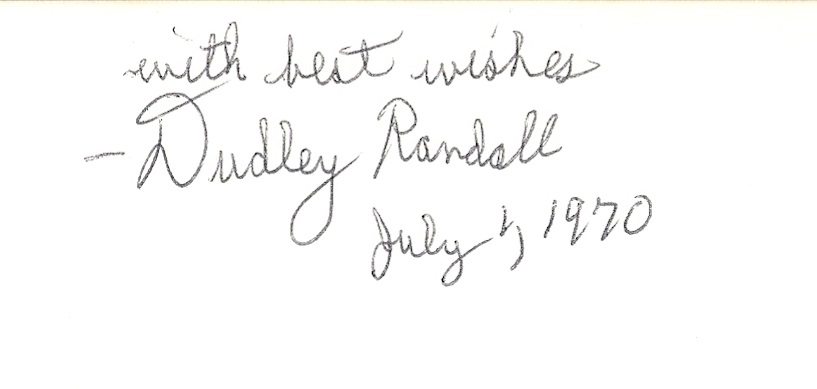 with best wishes
- Dudley Randall
July 1, 1970